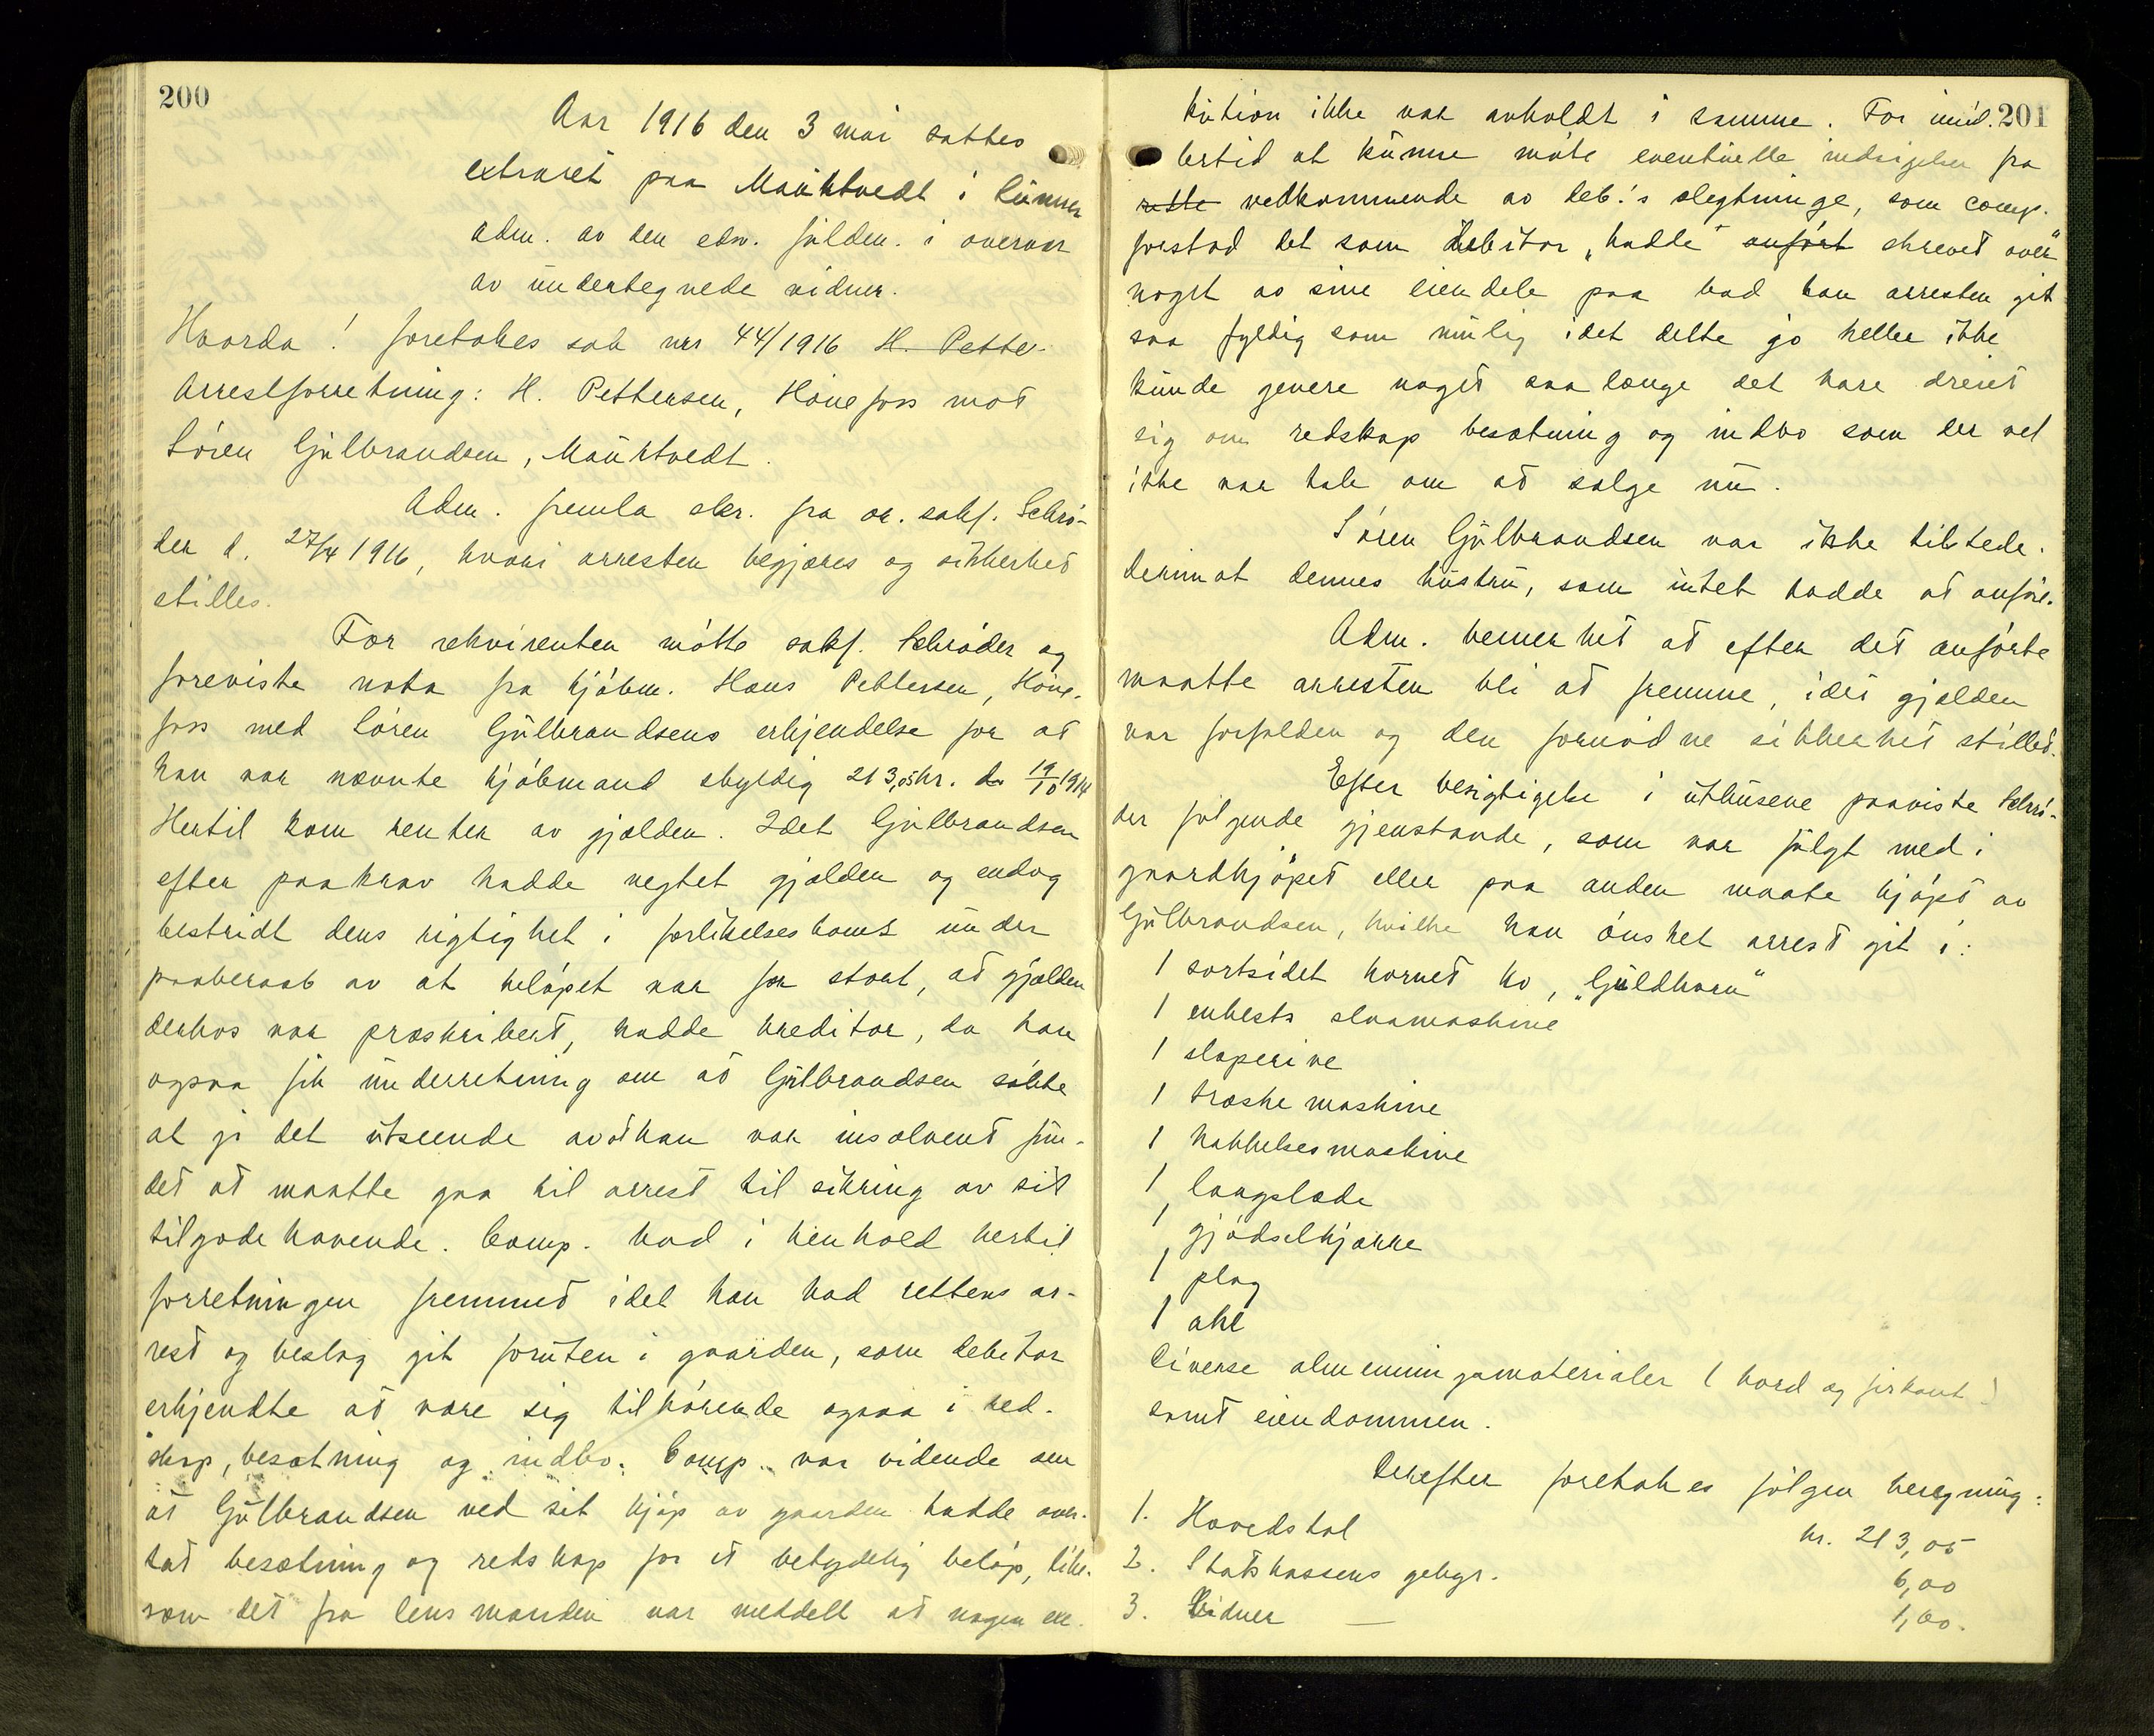 200
Aar 1916 den 3 mai sattes
extraret paa Mauktvedt i Lunner
adm. av den edsv. fuldm. i overvær
av undertegnede vidner.
Hvorda! foretokes sak nr 44/1916 H. Petter-
Arrestforretning: H. Pettersen, Hönefoss mot
Sören Gulbrandsen, Mauktvedt.
Adm. fremla skr. fra or. sakf. Schrö-
der d. 27/4 1916, hvori arresten begjæres og sikkerhet
stilles.
For rekvirenten mötte sakf. Schröder og
foreviste nota fra kjöbm. Hans Pettersen, Höne-
foss med Sören Gulbrandsens erkjendelse for at
han var nævnte kjöbmand skyldig 213,05 kr. d. 19/10 1914
Hertil kom renter av gjælden. Idet Gulbrandsen
efter paakrav hadde negtet gjælden og endog
bestridt dens rigtighet i forlikelseskomt under
paaberaab av at belöpet var for stort, at gjælden
derhos var præskribert, hadde kreditor, da han
ogsaa fik underretning om at Gulbrandsen sökte
at gi det utseende av at han var insolvent fun-
det at maatte gaa til arrest til sikring av sit
tilgodehavende. Comp. bad i henhold hertil
forretningen fremmet idet han bad rettens ar-
rest og beslag git foruten i gaarden, som debitor
erkjendte at være sig tilhörende ogsaa i red-
skap, besætning og indbo. Comp. var vidende om
at Gulbrandsen ved sit kjöp av gaarden hadde over-
tat besætning og redskap for et betydelig belöp, like-
som det fra lensmanden var meddelt at nogen exe-
201
kution ikke var avholdt i samme. For imid-
lertid at kunne möte eventuelle indsigelser fra
rette vedkommende av deb.'s slegtninge, som comp.
forstod det som debitor "hadde" anfört skrevet over"
noget av sine eiendele paa bad han arresten git
saa fyldig som mulig idet dette jo heller ikke
kunde genere noget saalænge det bare dreiet
sig om redskap besætning og indbo som der vel
ikke var tale om at sælge nu.
Sören Gulbrandsen var ikke tilstede.
derimot dennes hustru, som intet hadde at anföre.
Adm. bemerket at efter det anförte
maatte arresten bli at fremme, idet gjælden
var forfalden og den fornödne sikkerhet stillet.
Efter besigtigelse i uthusene paaviste Schrö-
der fölgende gjenstande, som var fulgt med i
gaardkjöpet eller paa anden maate kjöpt av
Gulbrandsen, hvilke han önsket arrest git i:
1 sortsidet hornet ko, "Guldhorn"
1 enhests slaamaskine
1 sloperive
1 træskemaskine
1 hakkelsesmaskine
1 langslæde
1 gjödselkjærre
1 plog
1 ahl
Diverse almenningsmaterialer (bord og firkant)
samt eiendommen.
Derefter foretokes fölgen beregning:
1. Hovedstol kr. 213,05
2. Statskassens gebyr. 6,00
3. Vidner — 1,00.